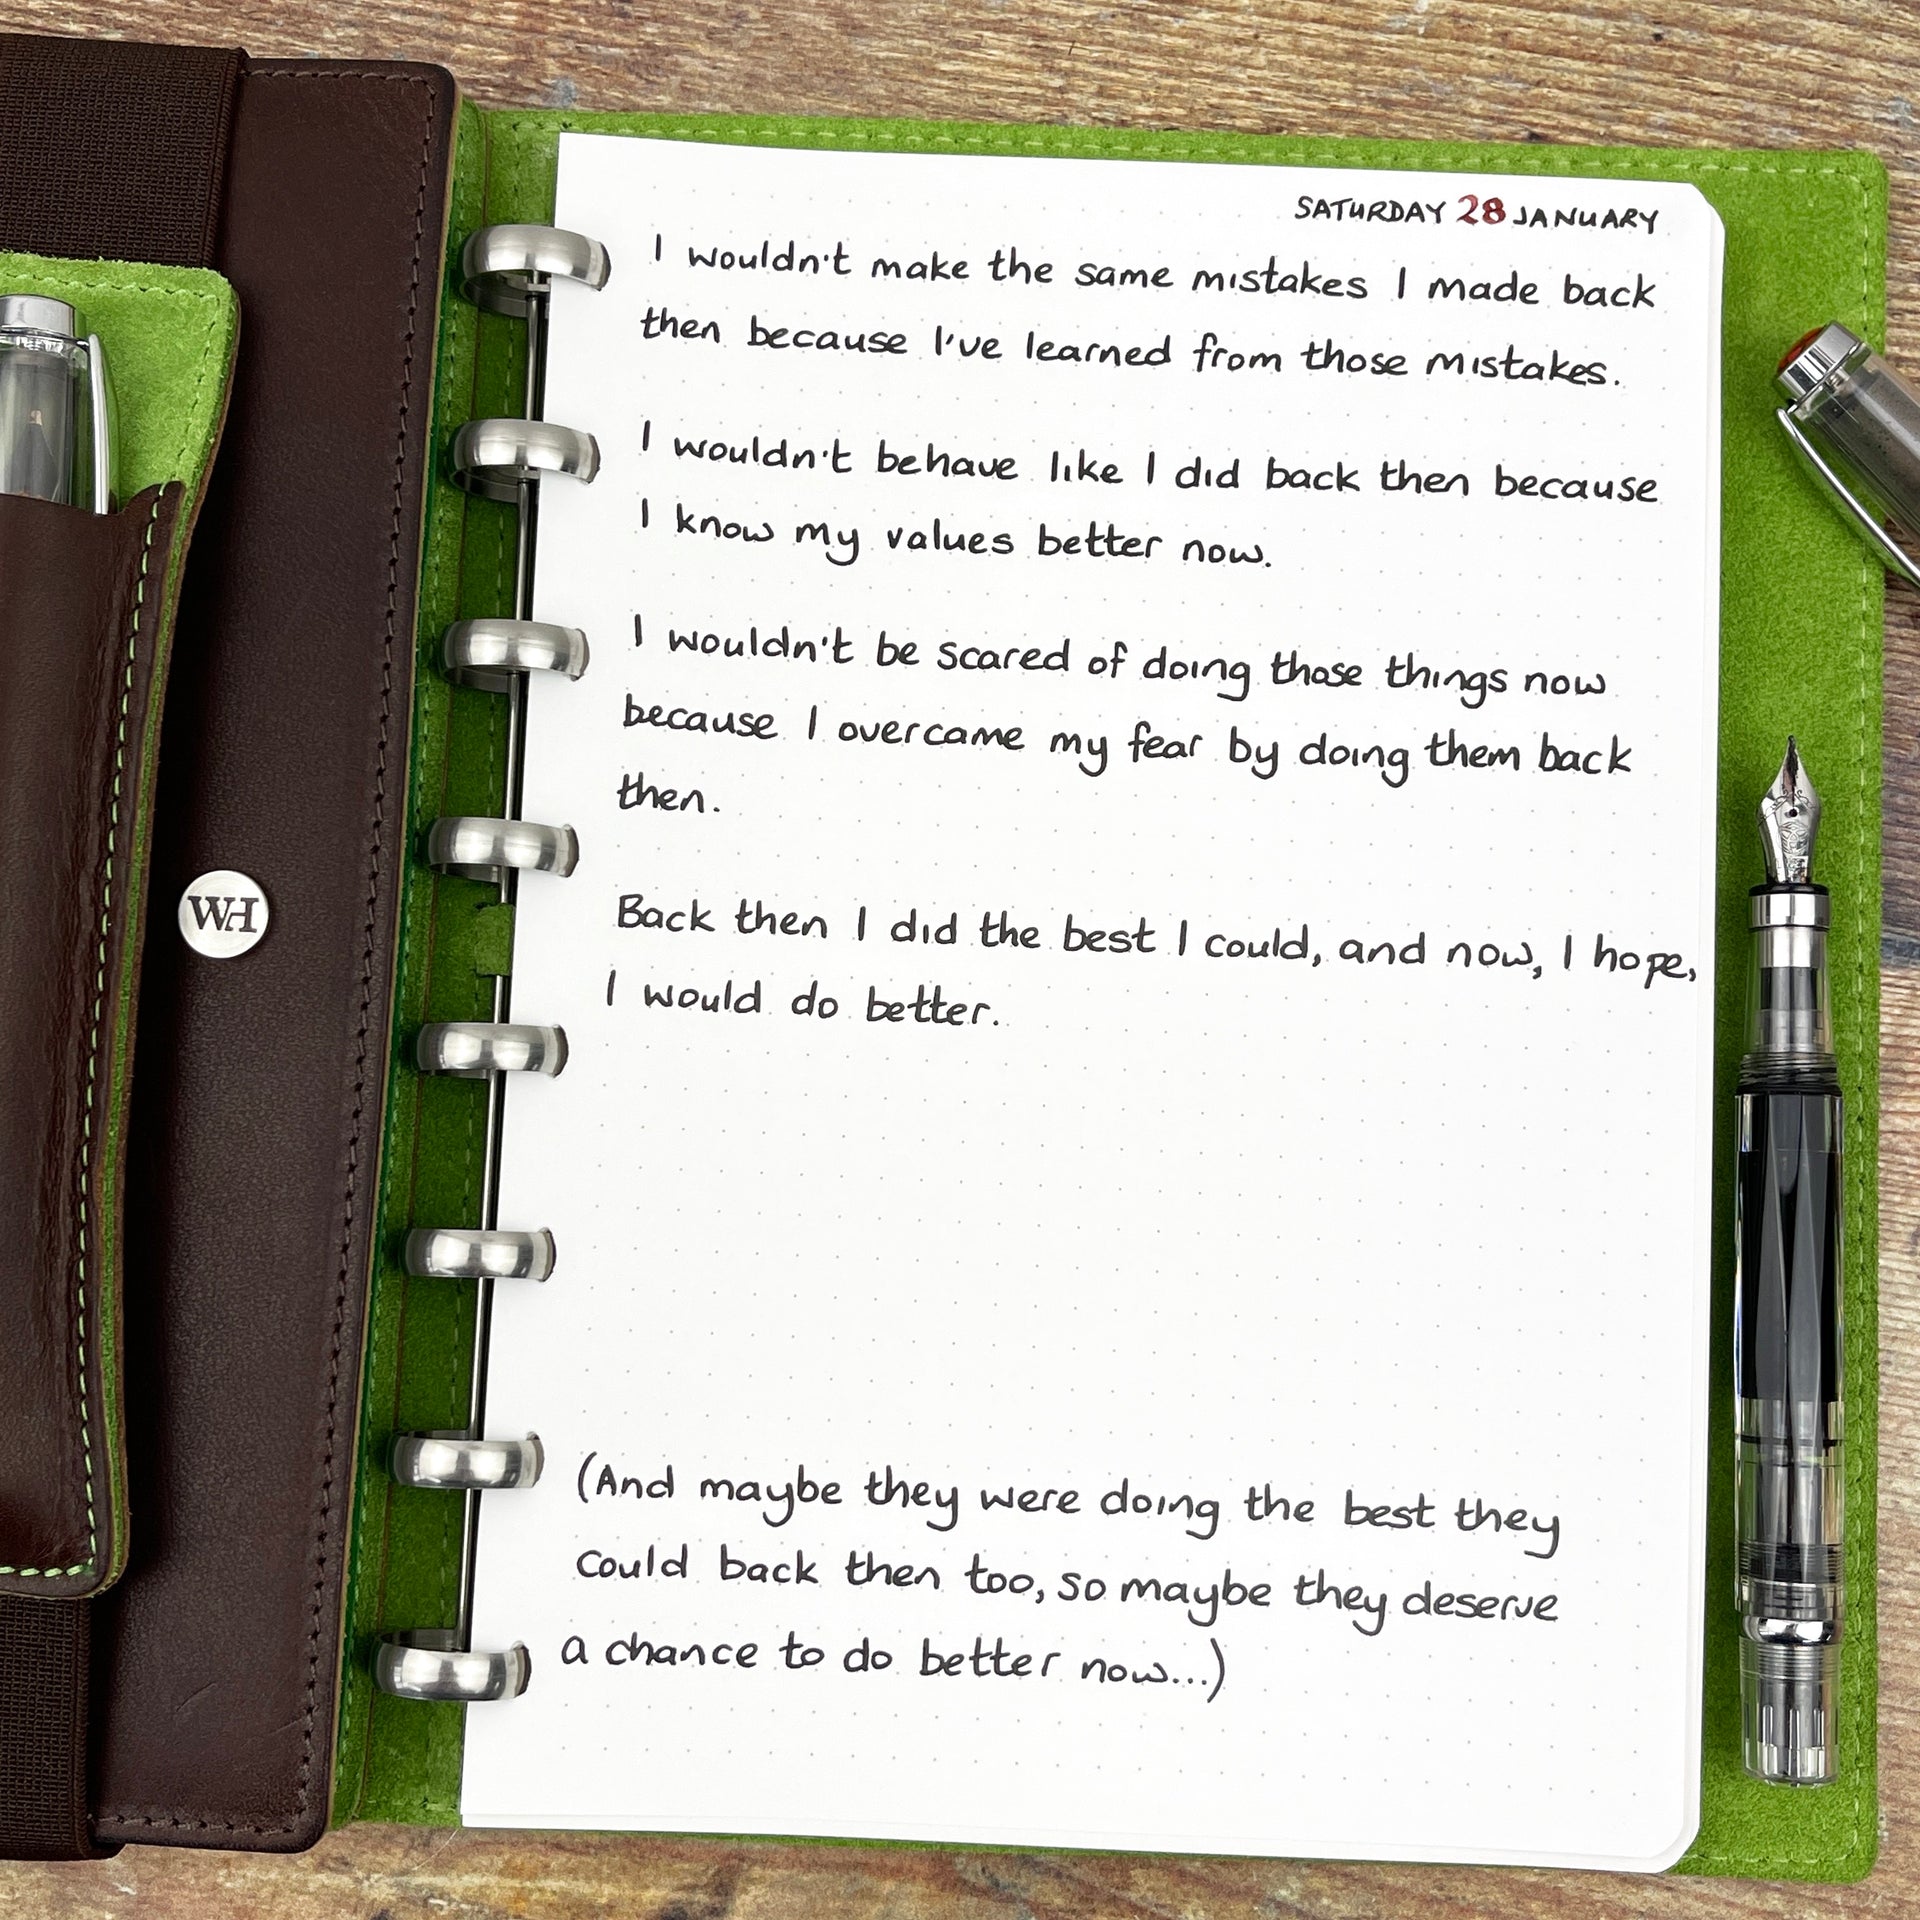 SATURDAY 28 JANUARY
I wouldn't make the same mistakes I made back
then because I've learned from those mistakes.
I wouldn't behave like I did back then because
I know my values better now.
I wouldn't be scared of doing those things now
because I overcame my fear by doing them back
then.
Back then I did the best I could, and now, I hope,
I would do better.
(And maybe they were doing the best they
could back then too, so maybe they deserve
a chance to do better now...)
WH